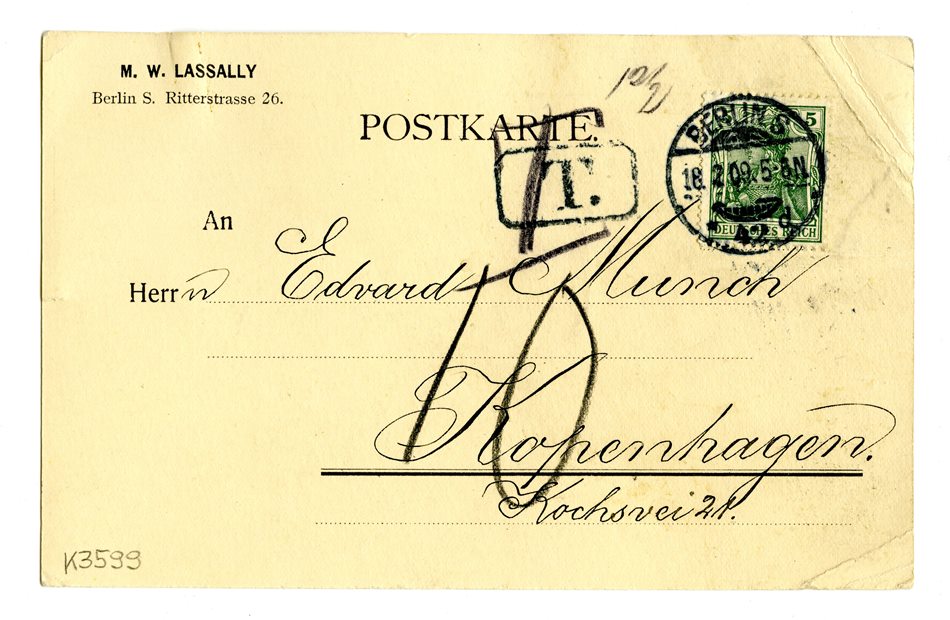 M. W. LASSALLY
Berlin S. Ritterstrasse 26.
POSTKARTE.
T.
BERLIN S.
18. 2. 09. 5-6 N.
* 42 d
5
DEUTSCHES REICH
An
Herrn Edvard Munch
10
Kopenhagen.
Kochsvei 21.
K3599